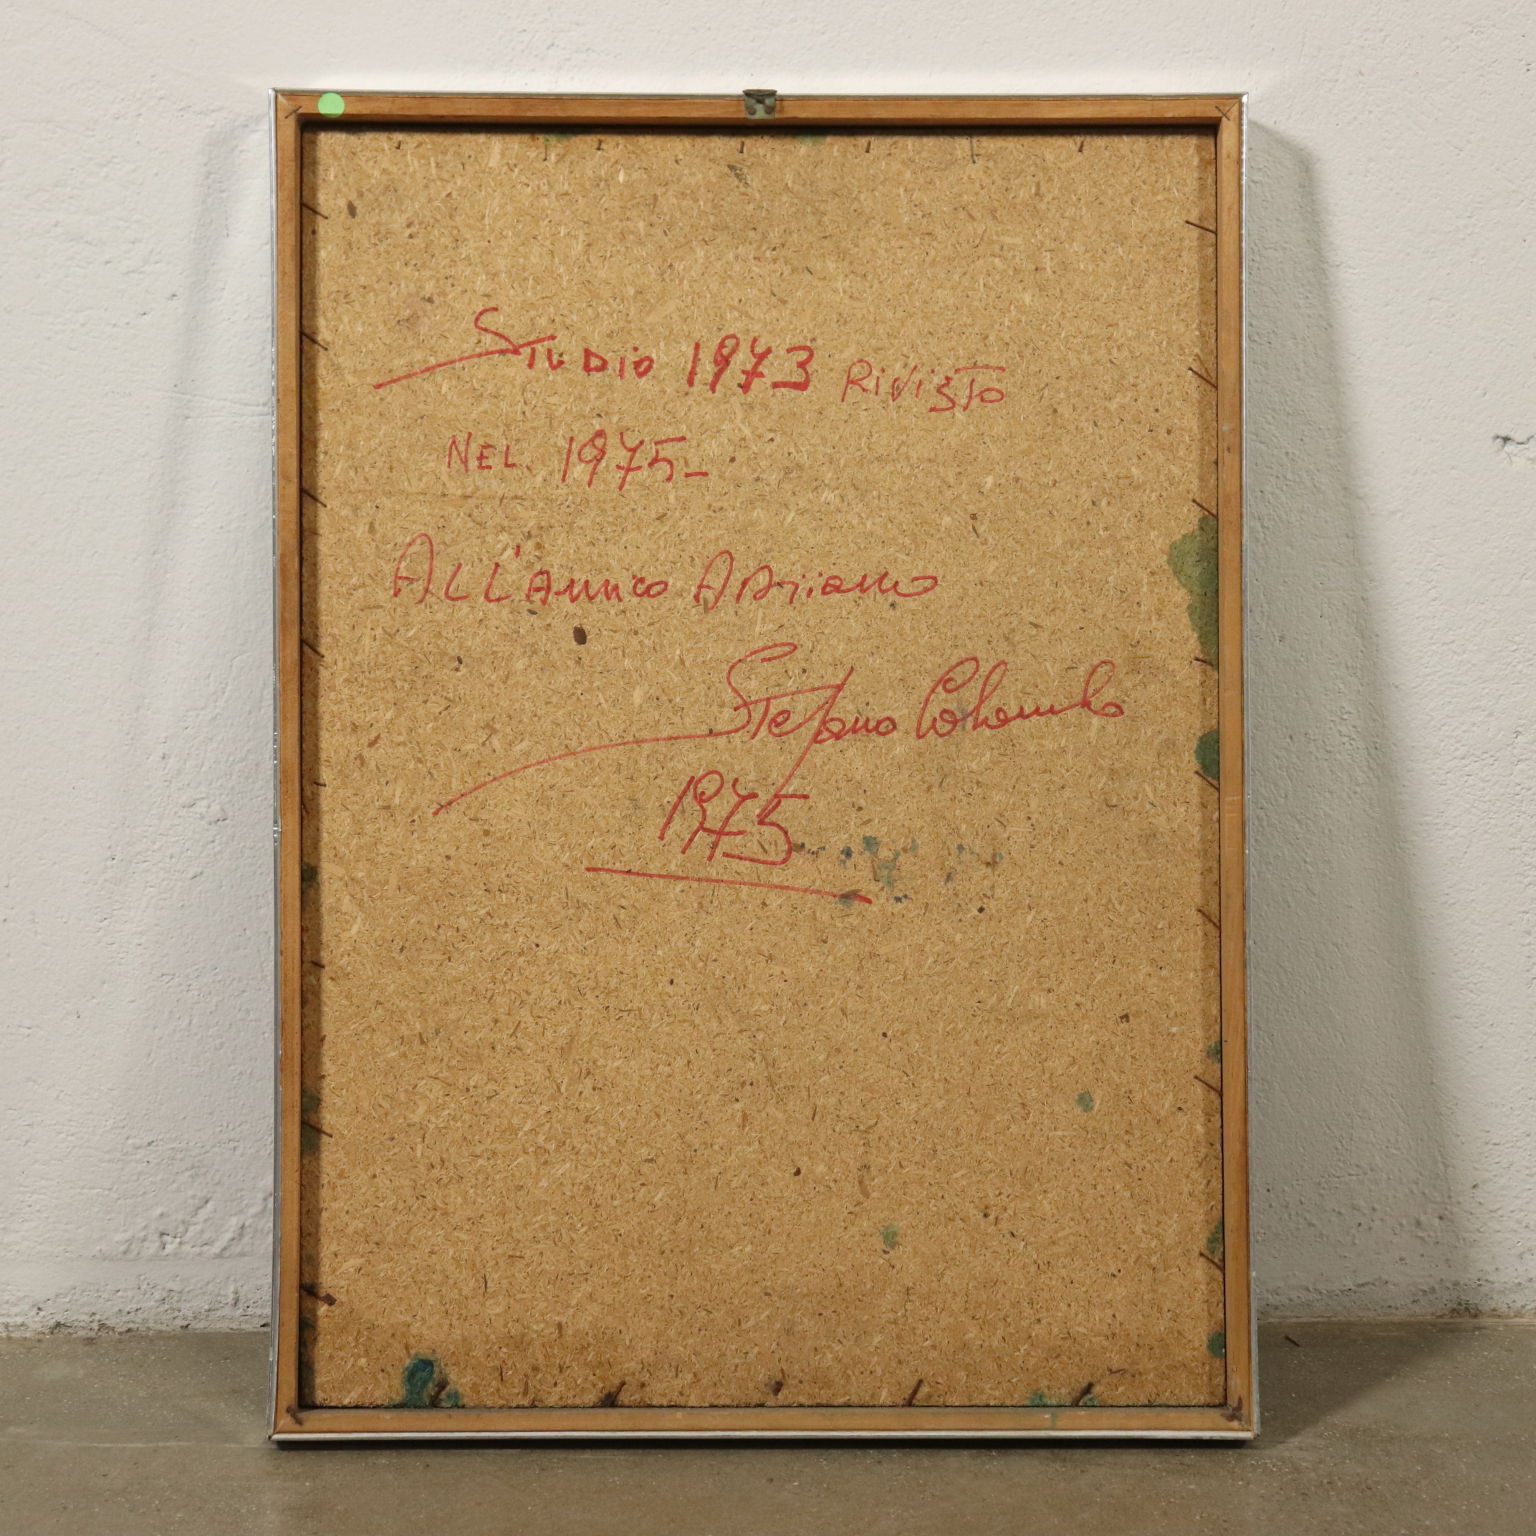 STUDIO 1973 RiViSTO
NEL 1975-
ALL'Amico ADriano
STefano Colombo
1975